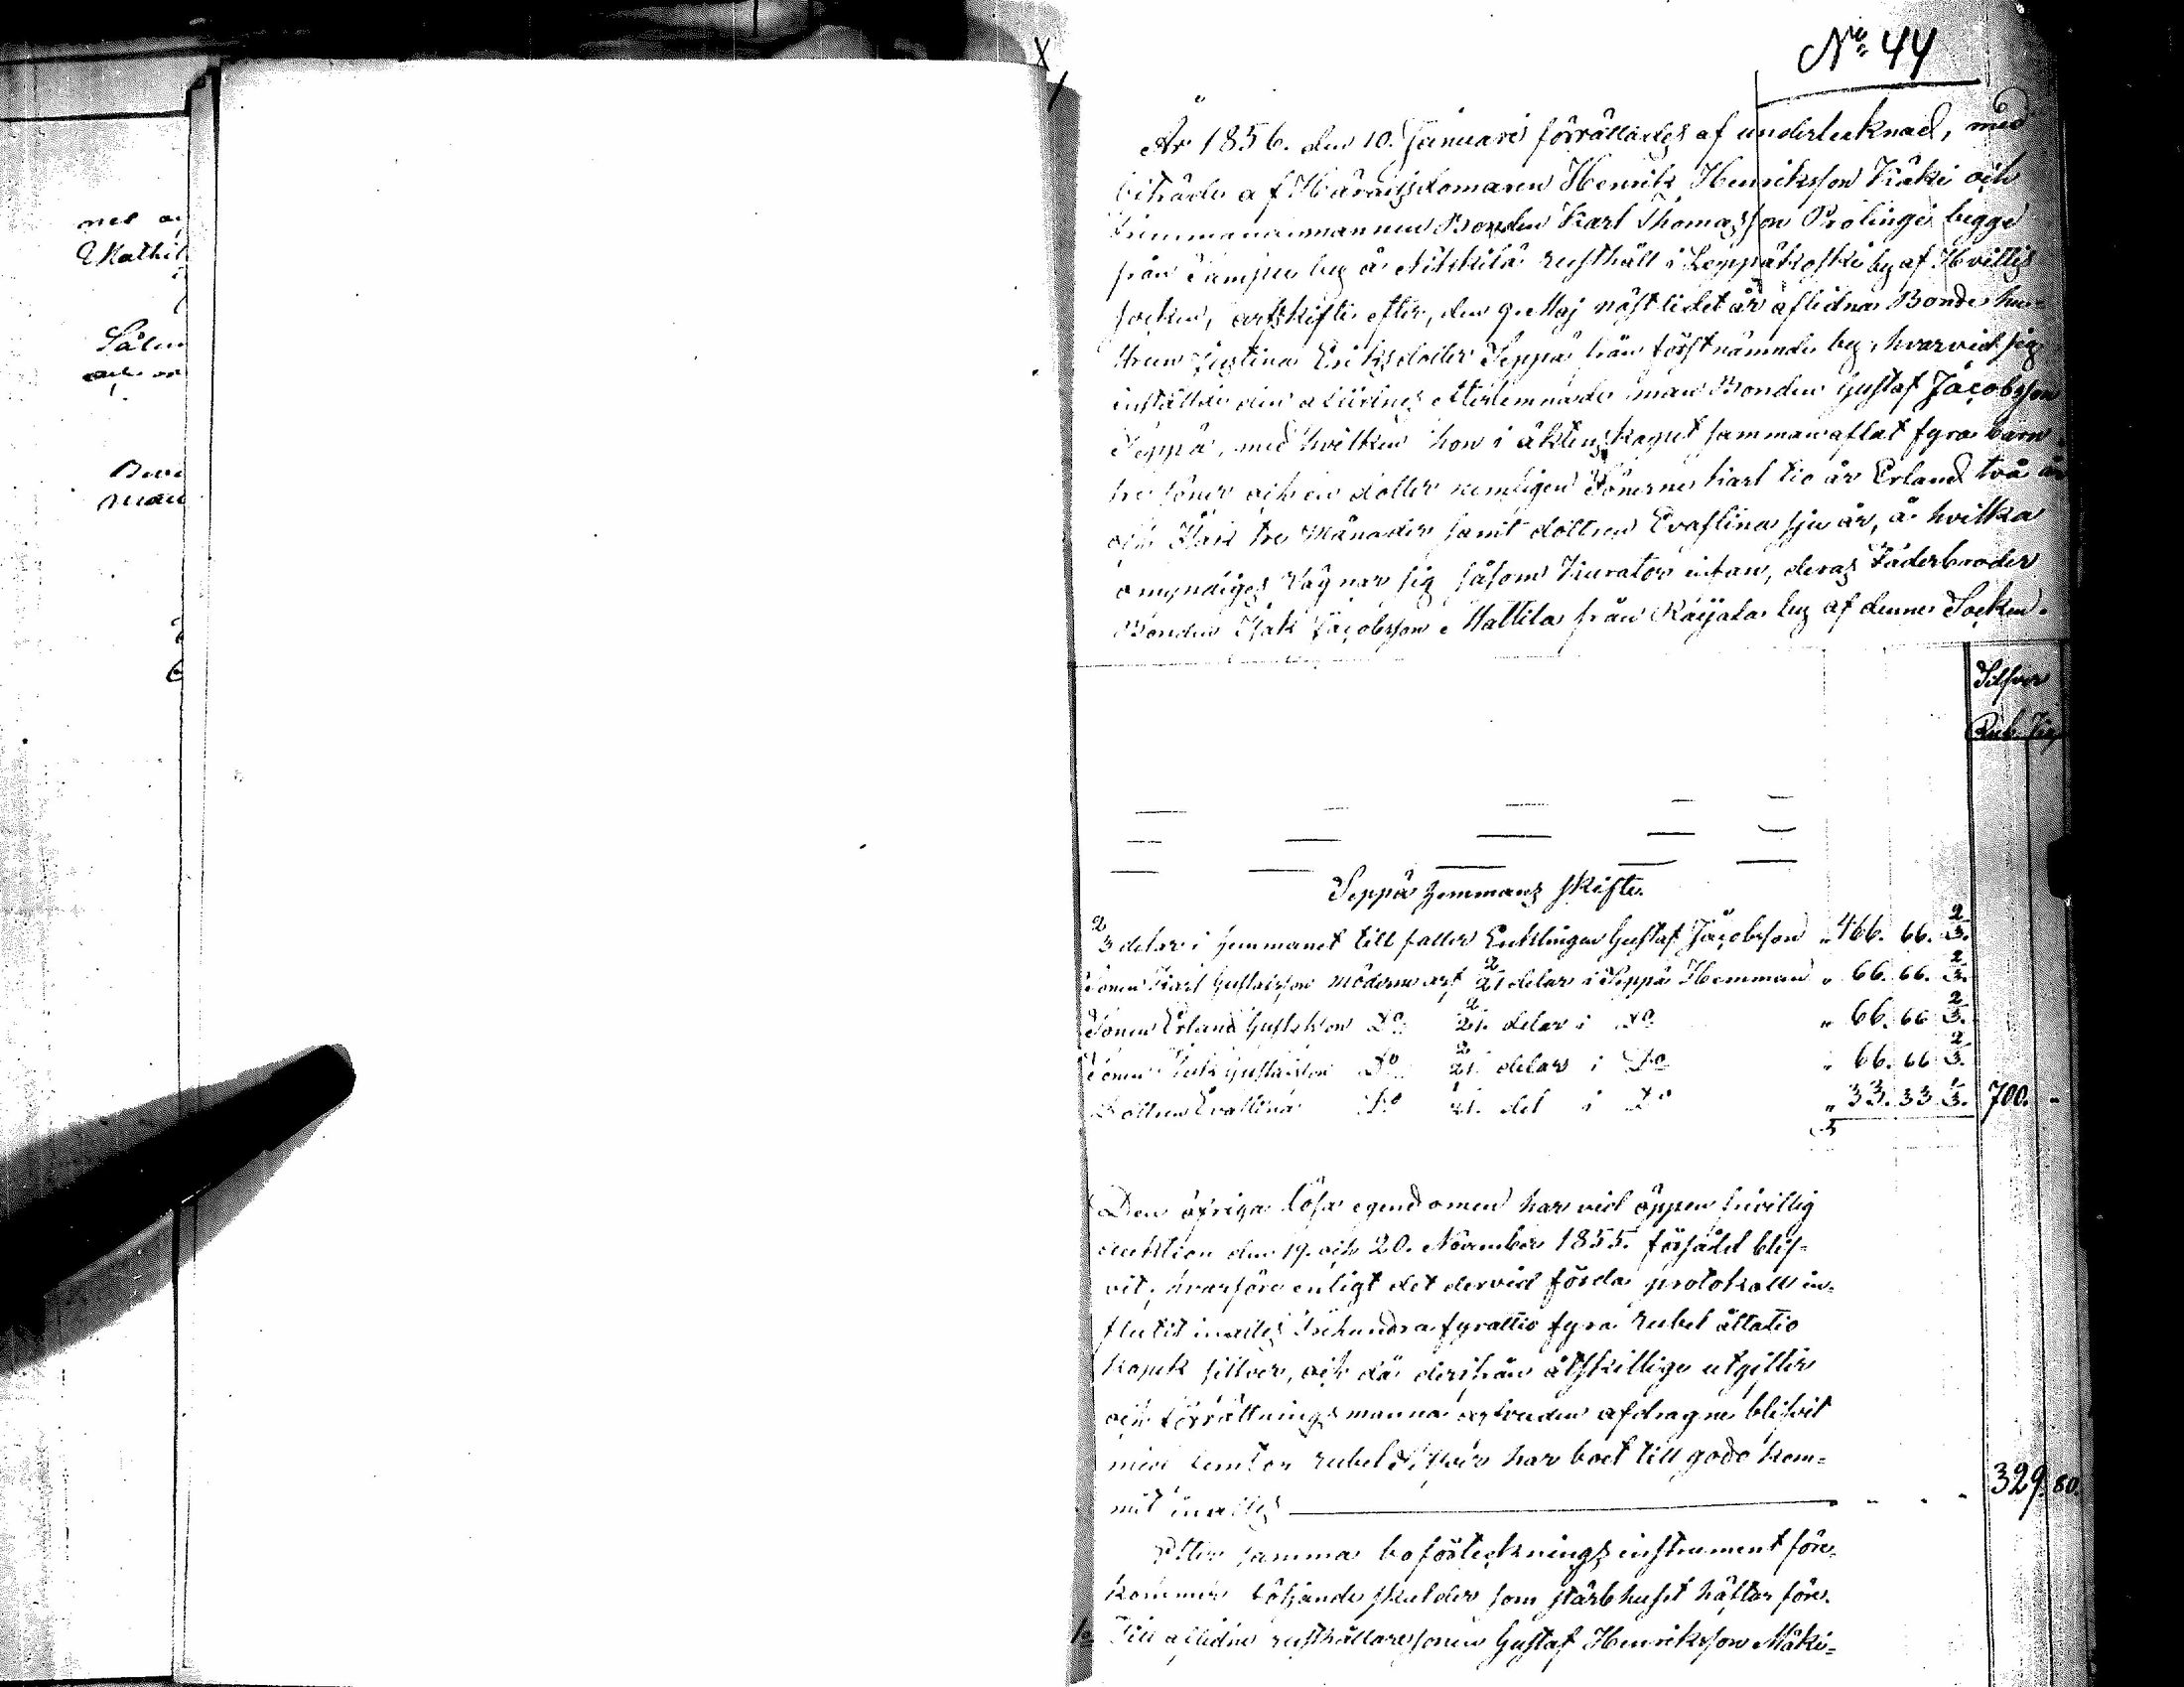 No 44
År 1856. den 10. Januarii förrättades af undertecknad, med
biträde af Häradsdomaren Henrik Henriksson Käki och
bonden Karl Thomasson Prolingi begge
från by å rusthåll i Leppäkoski by af Hvittis
socken, arfskifte efter, den 9. Maj nästlidet år aflidna Bonde hu-
strun Justina Eriksdotter Seppä från först nämnde by, hvarvid sig
inställde den aflidnes efterlemnade man Bonden Gustaf Jacobsson
Seppä, med hvilken hon i äktenskapet sammanaflat fyra barn
tre söner och en dotter nemligen Sönerne Karl tio år Erland två år
och Isak tre Månader samt dottren Evastina sju år, å hvilka
omyndiges vägnar sig såsom Kurator infan, deras Faderbroder
Bonden Isak Jacobsson Mattila från Raijala by af denne Socken.
Silfver
Rub. Kop
Seppä hemmans skifte.
2/3 delar i hemmanet till faller Enklingen Gustaf Jacobsson " 466. 66. 2/3.
Sonen Karl Gustafsson möderne arf 2/21 delar i Seppä Hemman " 66. 66. 2/3.
Sonen Erland Gustafsson Do 2/21. delar i Do " 66. 66 2/3.
Sonen Isak Gustafsson Do 2/21. delar i Do " 66. 66 2/3.
Dottren Evastina Do 1/21. del i Do " 33. 33 1/3. 700. -
Den öfriga lösa egendomen har vid öppen frivillig
auktion den 19. och 20. November 1855. försåld blif-
vit, hvarföre enligt det dervid förda protokoll in-
flutit inalles Trehundra fyratio fyra rubel åttatio
kopek silfver, och då derifrån åtskillige utgifter
och förrättningsmanna arfvoden afdragne blifvit
med femton rubel Silfver har boet till godo kom-
mit inalles 329. 80.
Efter samma boförtecknings instrument före-
kommer följande skulder som stärbhuset häftar före.
1o Till aflidne rusthållaresonen Gustaf Henriksson Mäki-